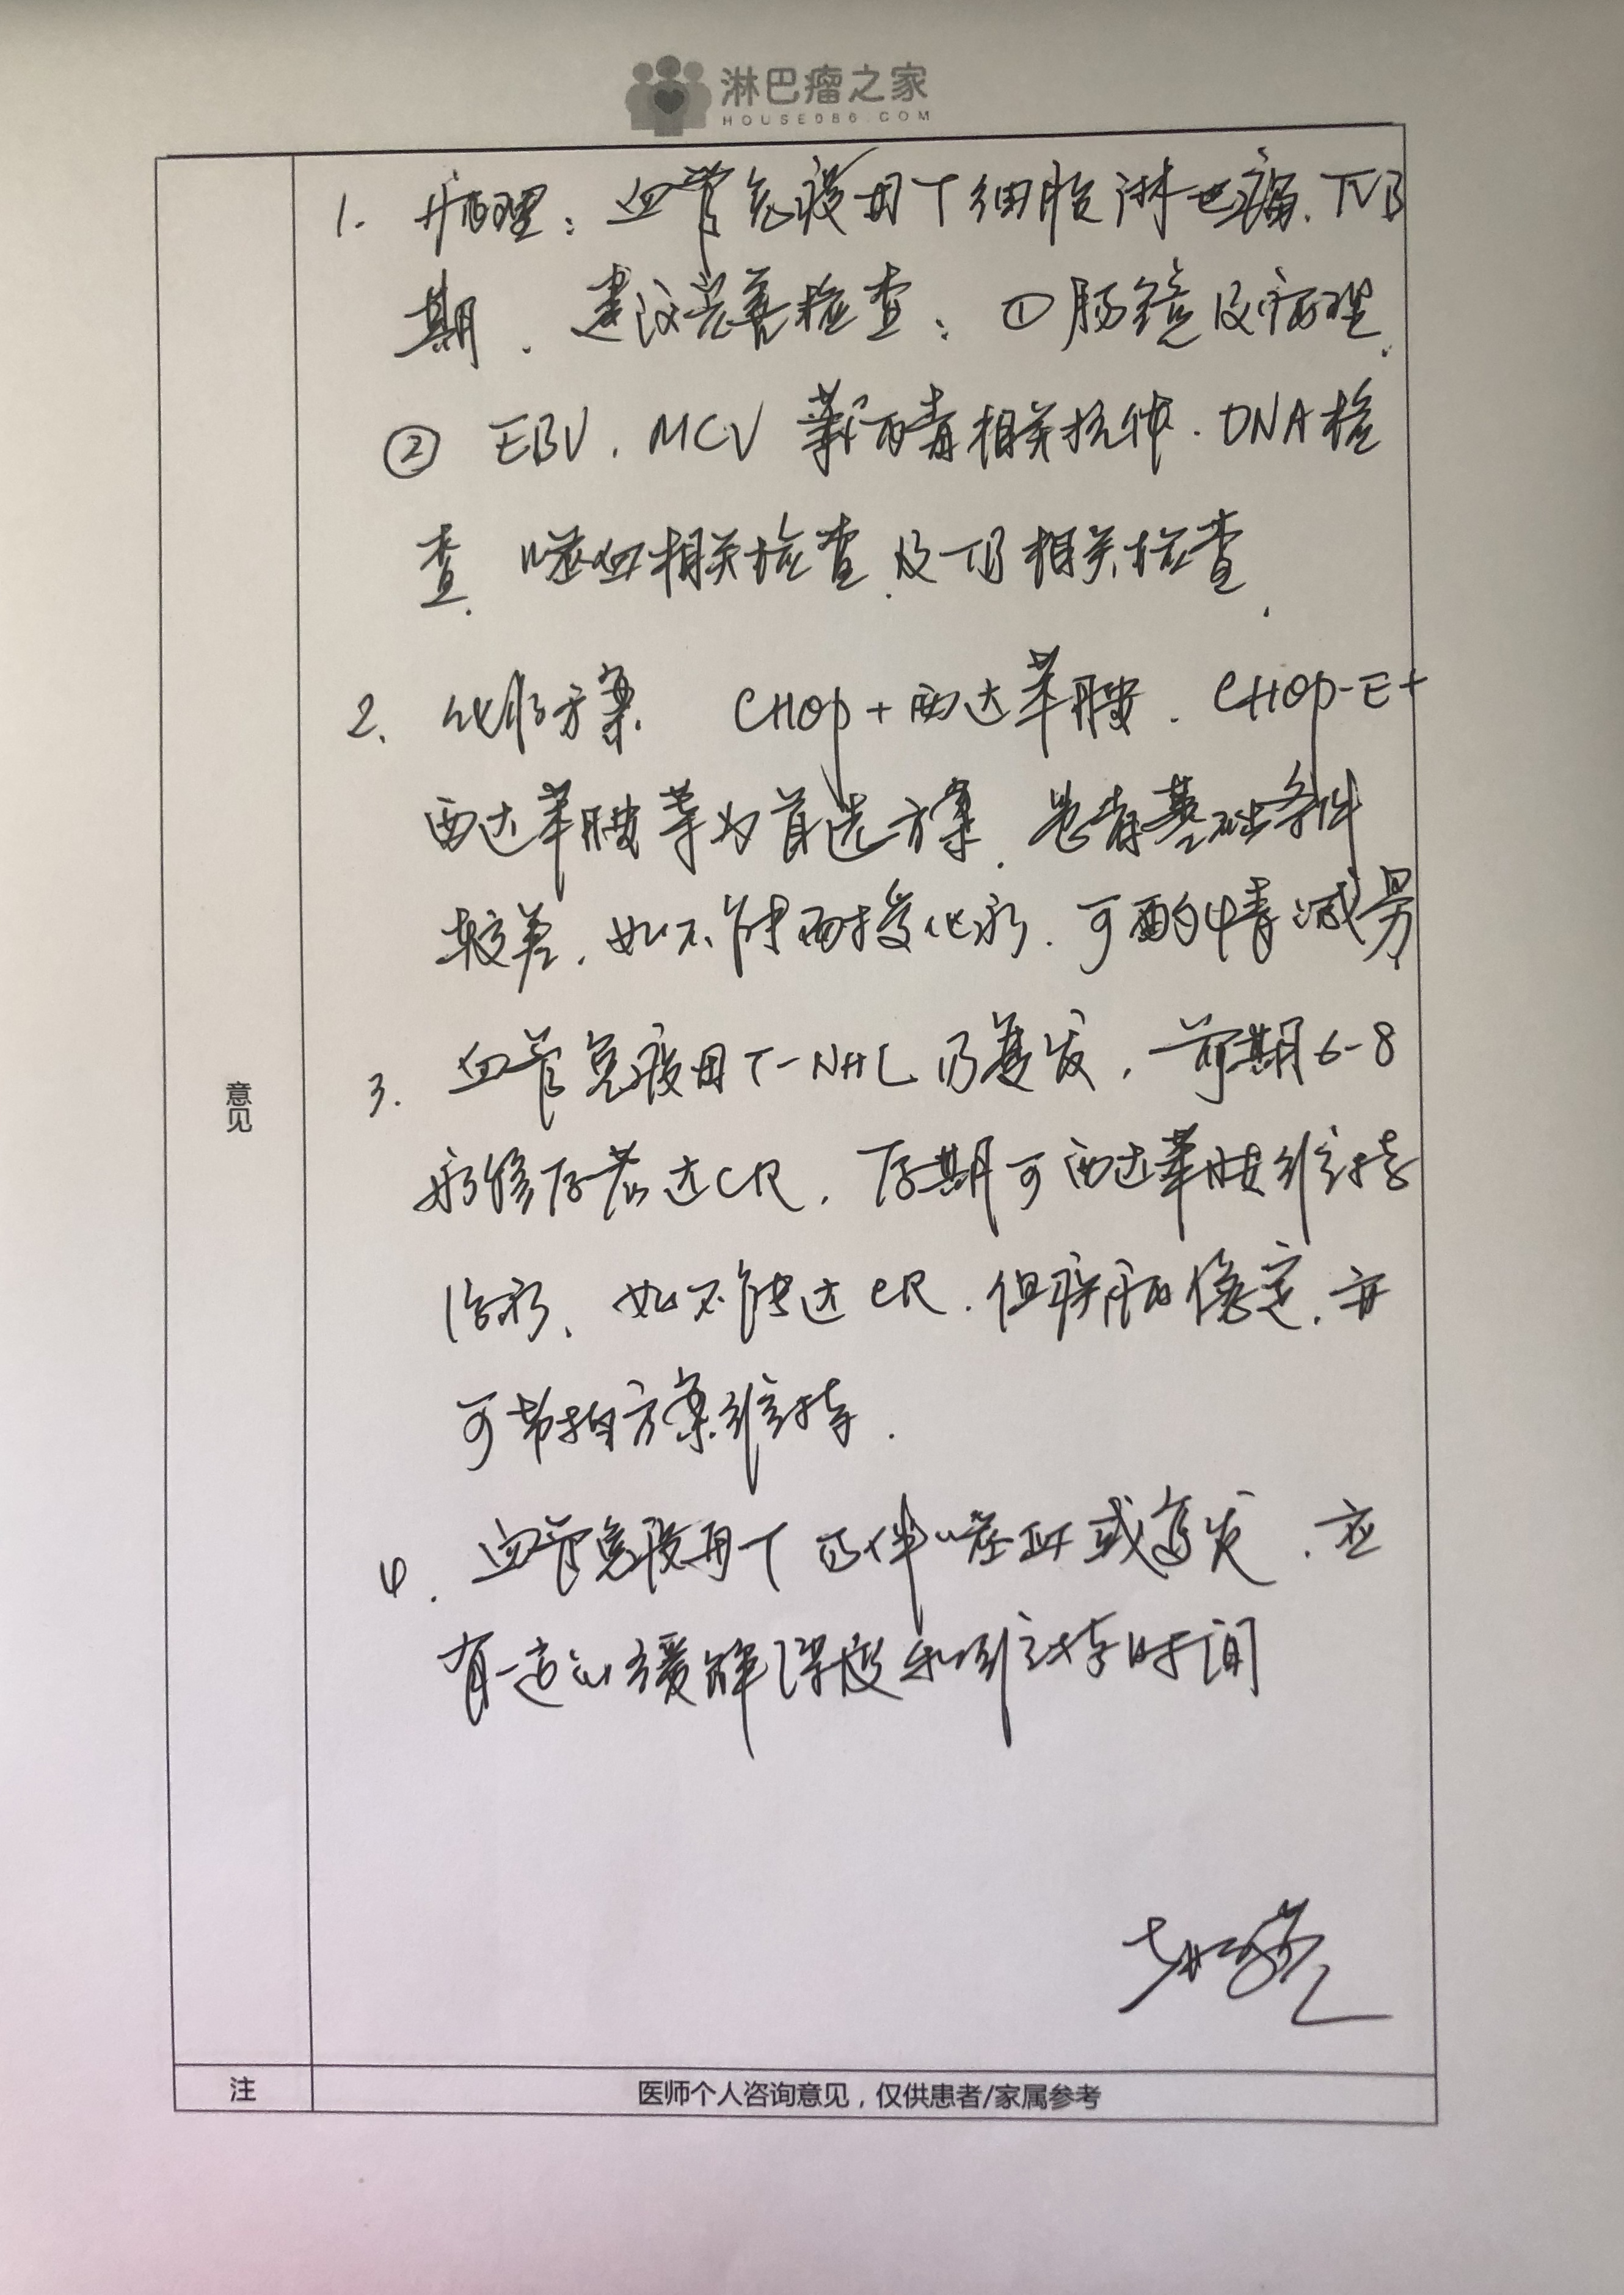 淋巴瘤之家
HOUSE086.COM
1. 病理：血管免疫母T细胞淋巴瘤. IVB
期. 建议完善检查：① 肠镜及病理.
② EBV. MCV 等病毒相关抗体. DNA检
查. 噬血相关检查. 及TB相关检查.
2. 化疗方案 CHOP+西达苯胺. CHOP-E+
西达苯胺等为首选方案. 患者基础条件
较差. 如不能耐受化疗. 可酌情减量
意见
3. 血管免疫母T-NHL 易复发, 前期6-8
疗程后若达CR, 后期可西达苯胺维持
治疗. 如不能达CR. 但疾病稳定. 亦
可节拍方案维持.
4. 血管免疫母T 易伴噬血或复发. 应
有一定的缓解深度和维持时间
注 医师个人咨询意见，仅供患者/家属参考